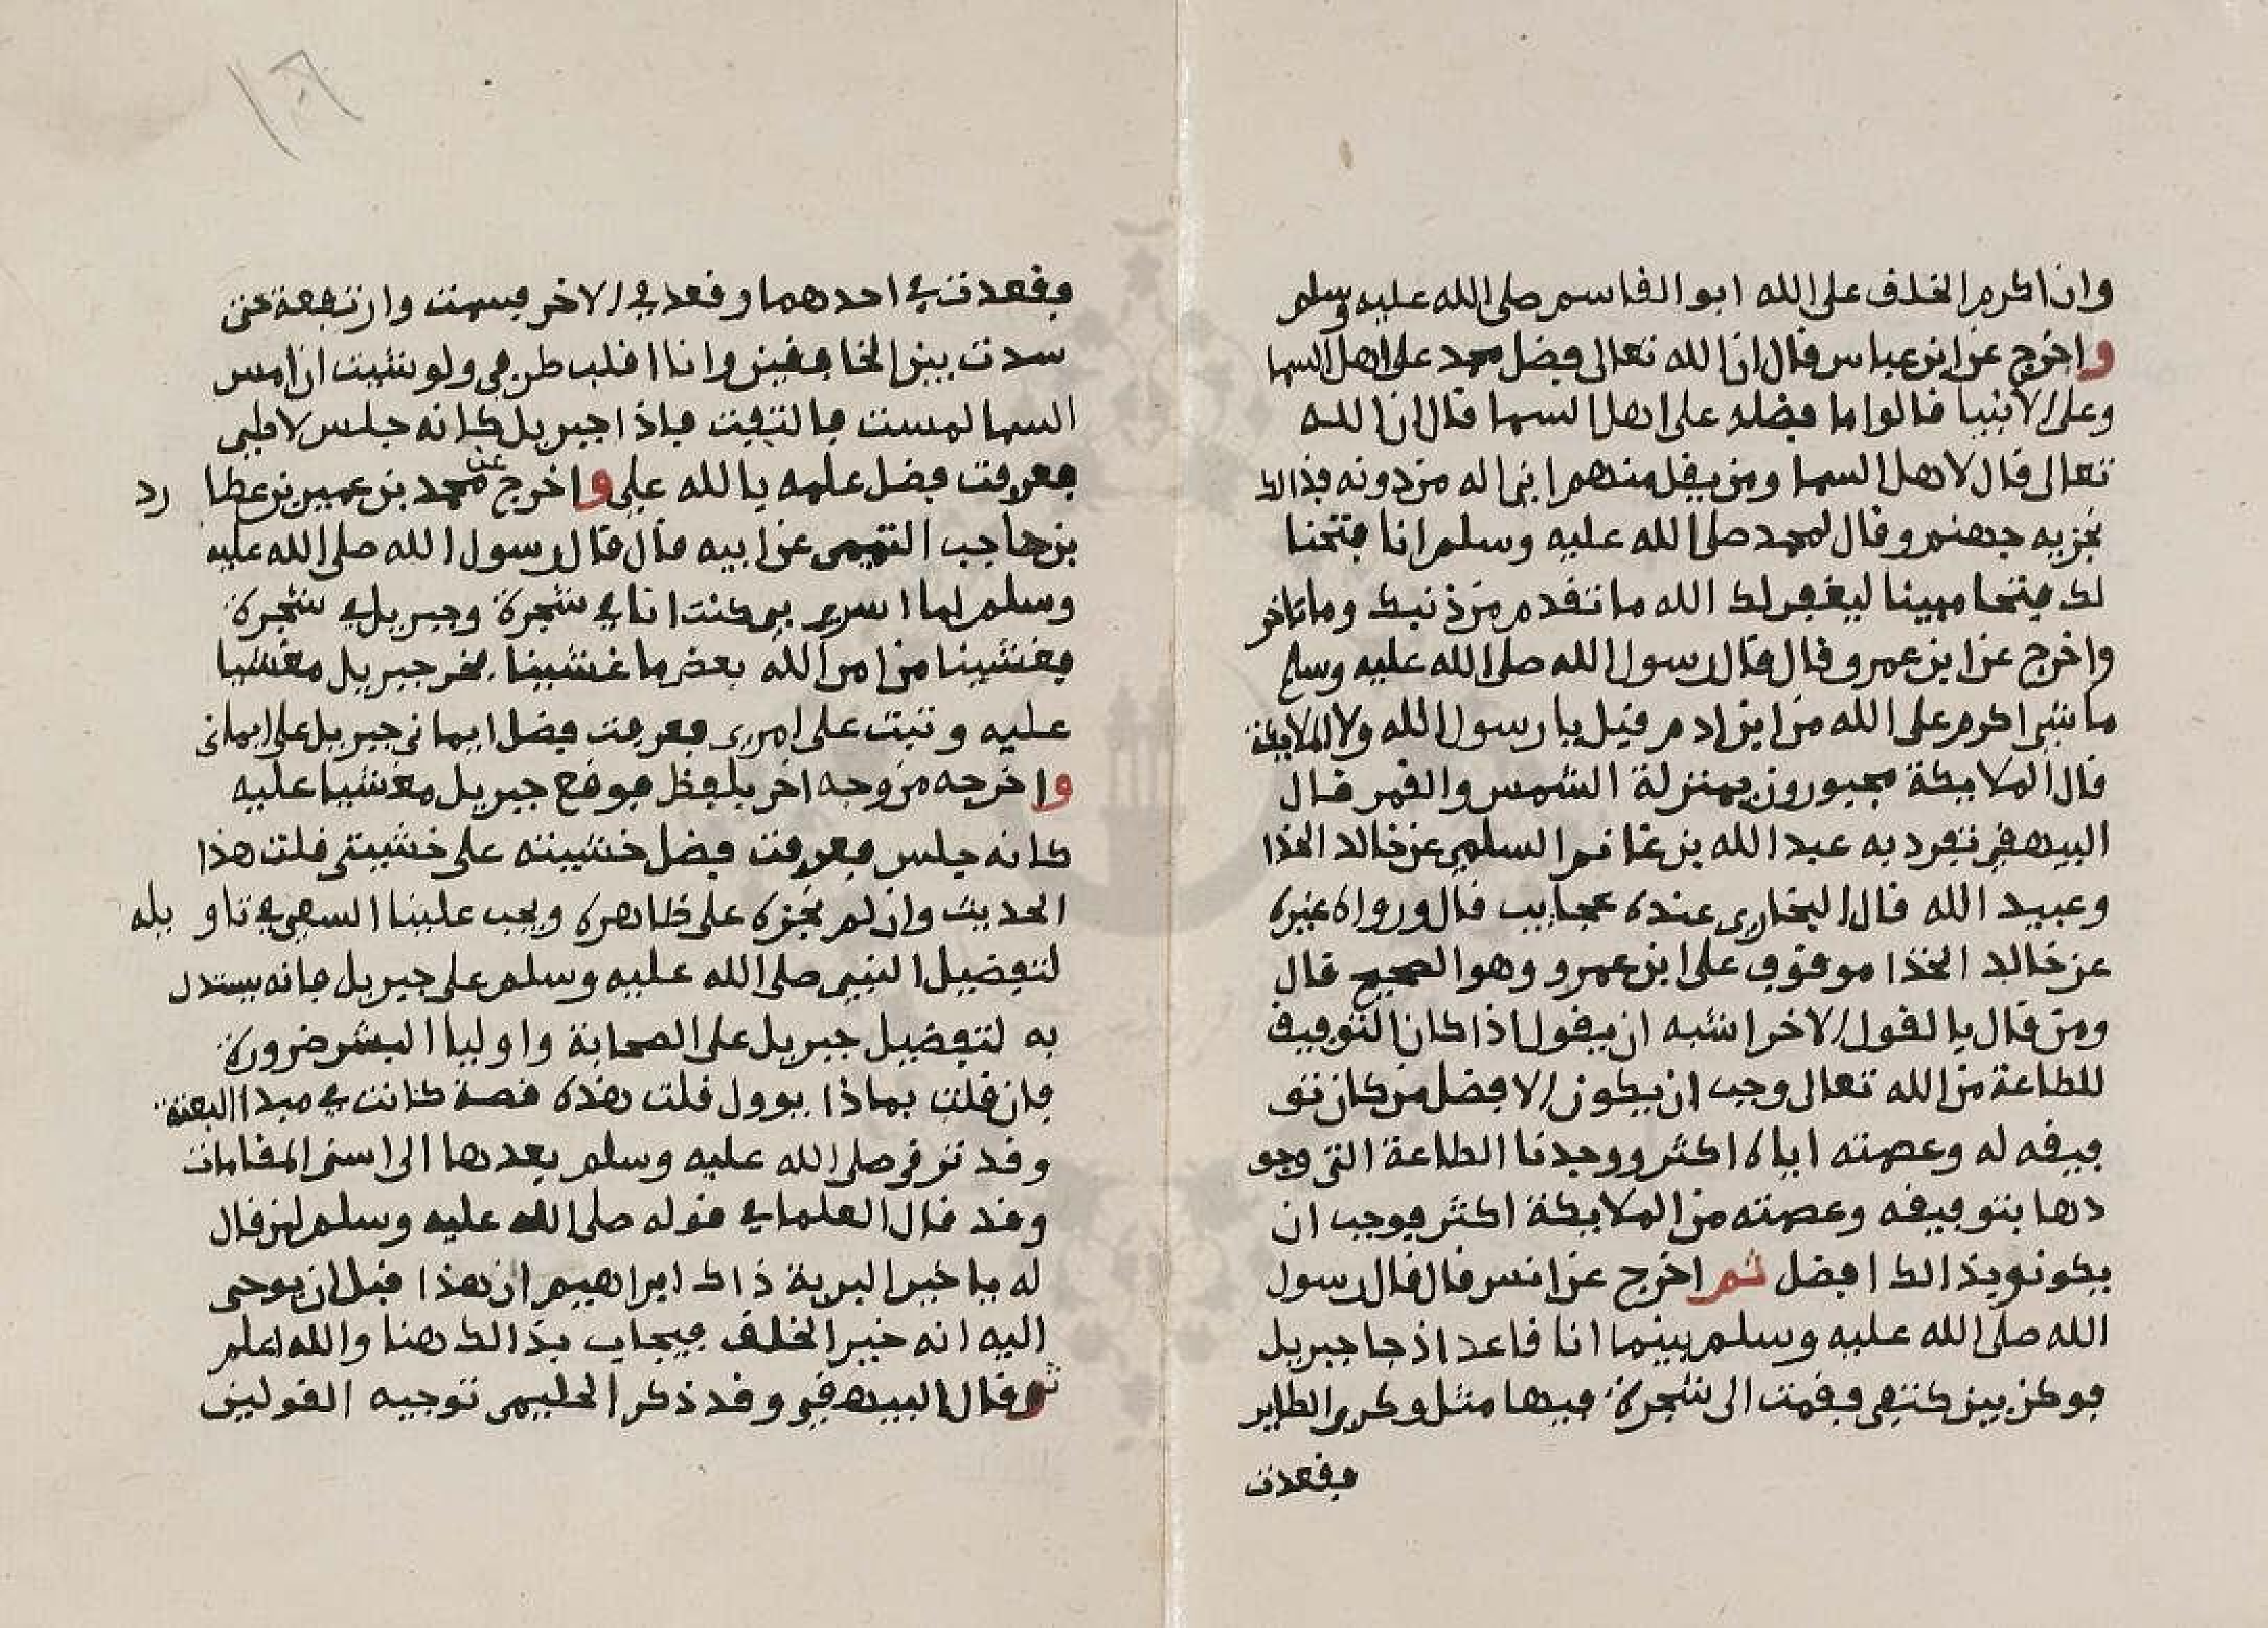 وان اكرم الخلق على الله ابو القاسم صلى الله عليه وسلم
واخرج عن ابن عباس قال ان الله تعالى فضل محمد على اهل السما
وعلى الانبيا قالوا ما فضله على اهل السما قال ان الله
تعالى قال لاهل السما ومن يقل منهم اني اله من دونه فذالك
نجزيه جهنم وقال لمحمد صلى الله عليه وسلم انا فتحنا
لك فتحا مبينا ليغفر لك الله ما تقدم من ذنبك وما تاخر
واخرج عن ابن عمرو قال قال رسول الله صلى الله عليه وسلم
ما شي اكرم على الله من ابن ادم قيل يا رسول الله ولا الملايكة
قال الملايكة مجبورون بمنزلة الشمس والقمر قال
البيهقي تفرد به عبد الله بن تمام السلمي عن خالد الحذا
وعبيد الله قال البخاري عنده عجايب قال ورواه غيره
عن خالد الحذا موقوف على ابن عمرو وهو الصحيح قال
ومن قال بالقول الاخر اشبه ان يقول اذا كان التوفيق
للطاعة من الله تعالى وجب ان يكون الافضل من كان تو
فيقه له وعصمته اياه اكثر ووجدنا الطاعة التي وجو
دها بتوفيقه وعصمته من الملايكة اكثر فوجب ان
يكونو بذالك افضل ثم اخرج عن انس قال قال رسول
الله صلى الله عليه وسلم بينما انا قاعد اذ جا جبريل
فوكز بين كتفي فقمت الى شجرة فيها مثل وكري الطاير
فقعدت
فقعدت في احدهما وقعد في الاخر فسمت وارتفعة حتى
سدت بين الخافقين وانا اقلب طرفي ولو شيت ان امس
السما لمست فالتفت فاذا جبريل كانه جلس لاطي
فعرفت فضل علمه بالله علي واخرج عن محمد بن عمير بن عطا رد
بن حاجب التميمي عن ابيه قال قال رسول الله صلى الله عليه
وسلم لما اسري بي كنت انا في شجرة وجبريل في شجرة
فغشينا من امر الله بعض ما غشينا فخر جبريل مغشيا
عليه وثبت على امري فعرفت فضل ايمان جبريل على ايماني
واخرجه من وجه اخر بلفظ فوقع جبريل مغشيا عليه
كانه جلس فعرفت فضل خشيته على خشيتي قلت هذا
الحديث وان لم نجزه على ظاهره ويجب علينا السعي في تاو يله
لتفضيل النبي صلى الله عليه وسلم على جبريل فانه يستدل
به لتفضيل جبريل على الصحابة واوليا البشر ضرورة
فان قلت بماذا يوول قلت هذه قصة كانت في مبدا البعثة
وقد ترقى صلى الله عليه وسلم بعدها الى اسنى المقامات
وقد قال العلما في قوله صلى الله عليه وسلم لمن قال
له يا خير البرية ذاك ابراهيم ان هذا قبل ان يوحى
اليه انه خير الخلق فيجاب بذالك هنا والله اعلم
ثم قال البيهقي وقد ذكر الحليمي توجيه القولين